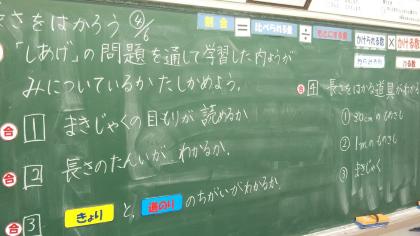 さをはかろう ④/6
「しあげ」の問題を通して学習した内ようが
みについているかたしかめよう。
合 1 まきじゃくの目もりが読めるか
合 2 長さのたんいが、わかるか。
合 3 きょり と、道のり のちがいがわかるか。
割合 = 比べられる量 ÷ もとにする量
かけられる数 × かける数
合 4 長さをはかる道具がわかる
① 30cmのものさし
② 1mのものさし
③ まきじゃく